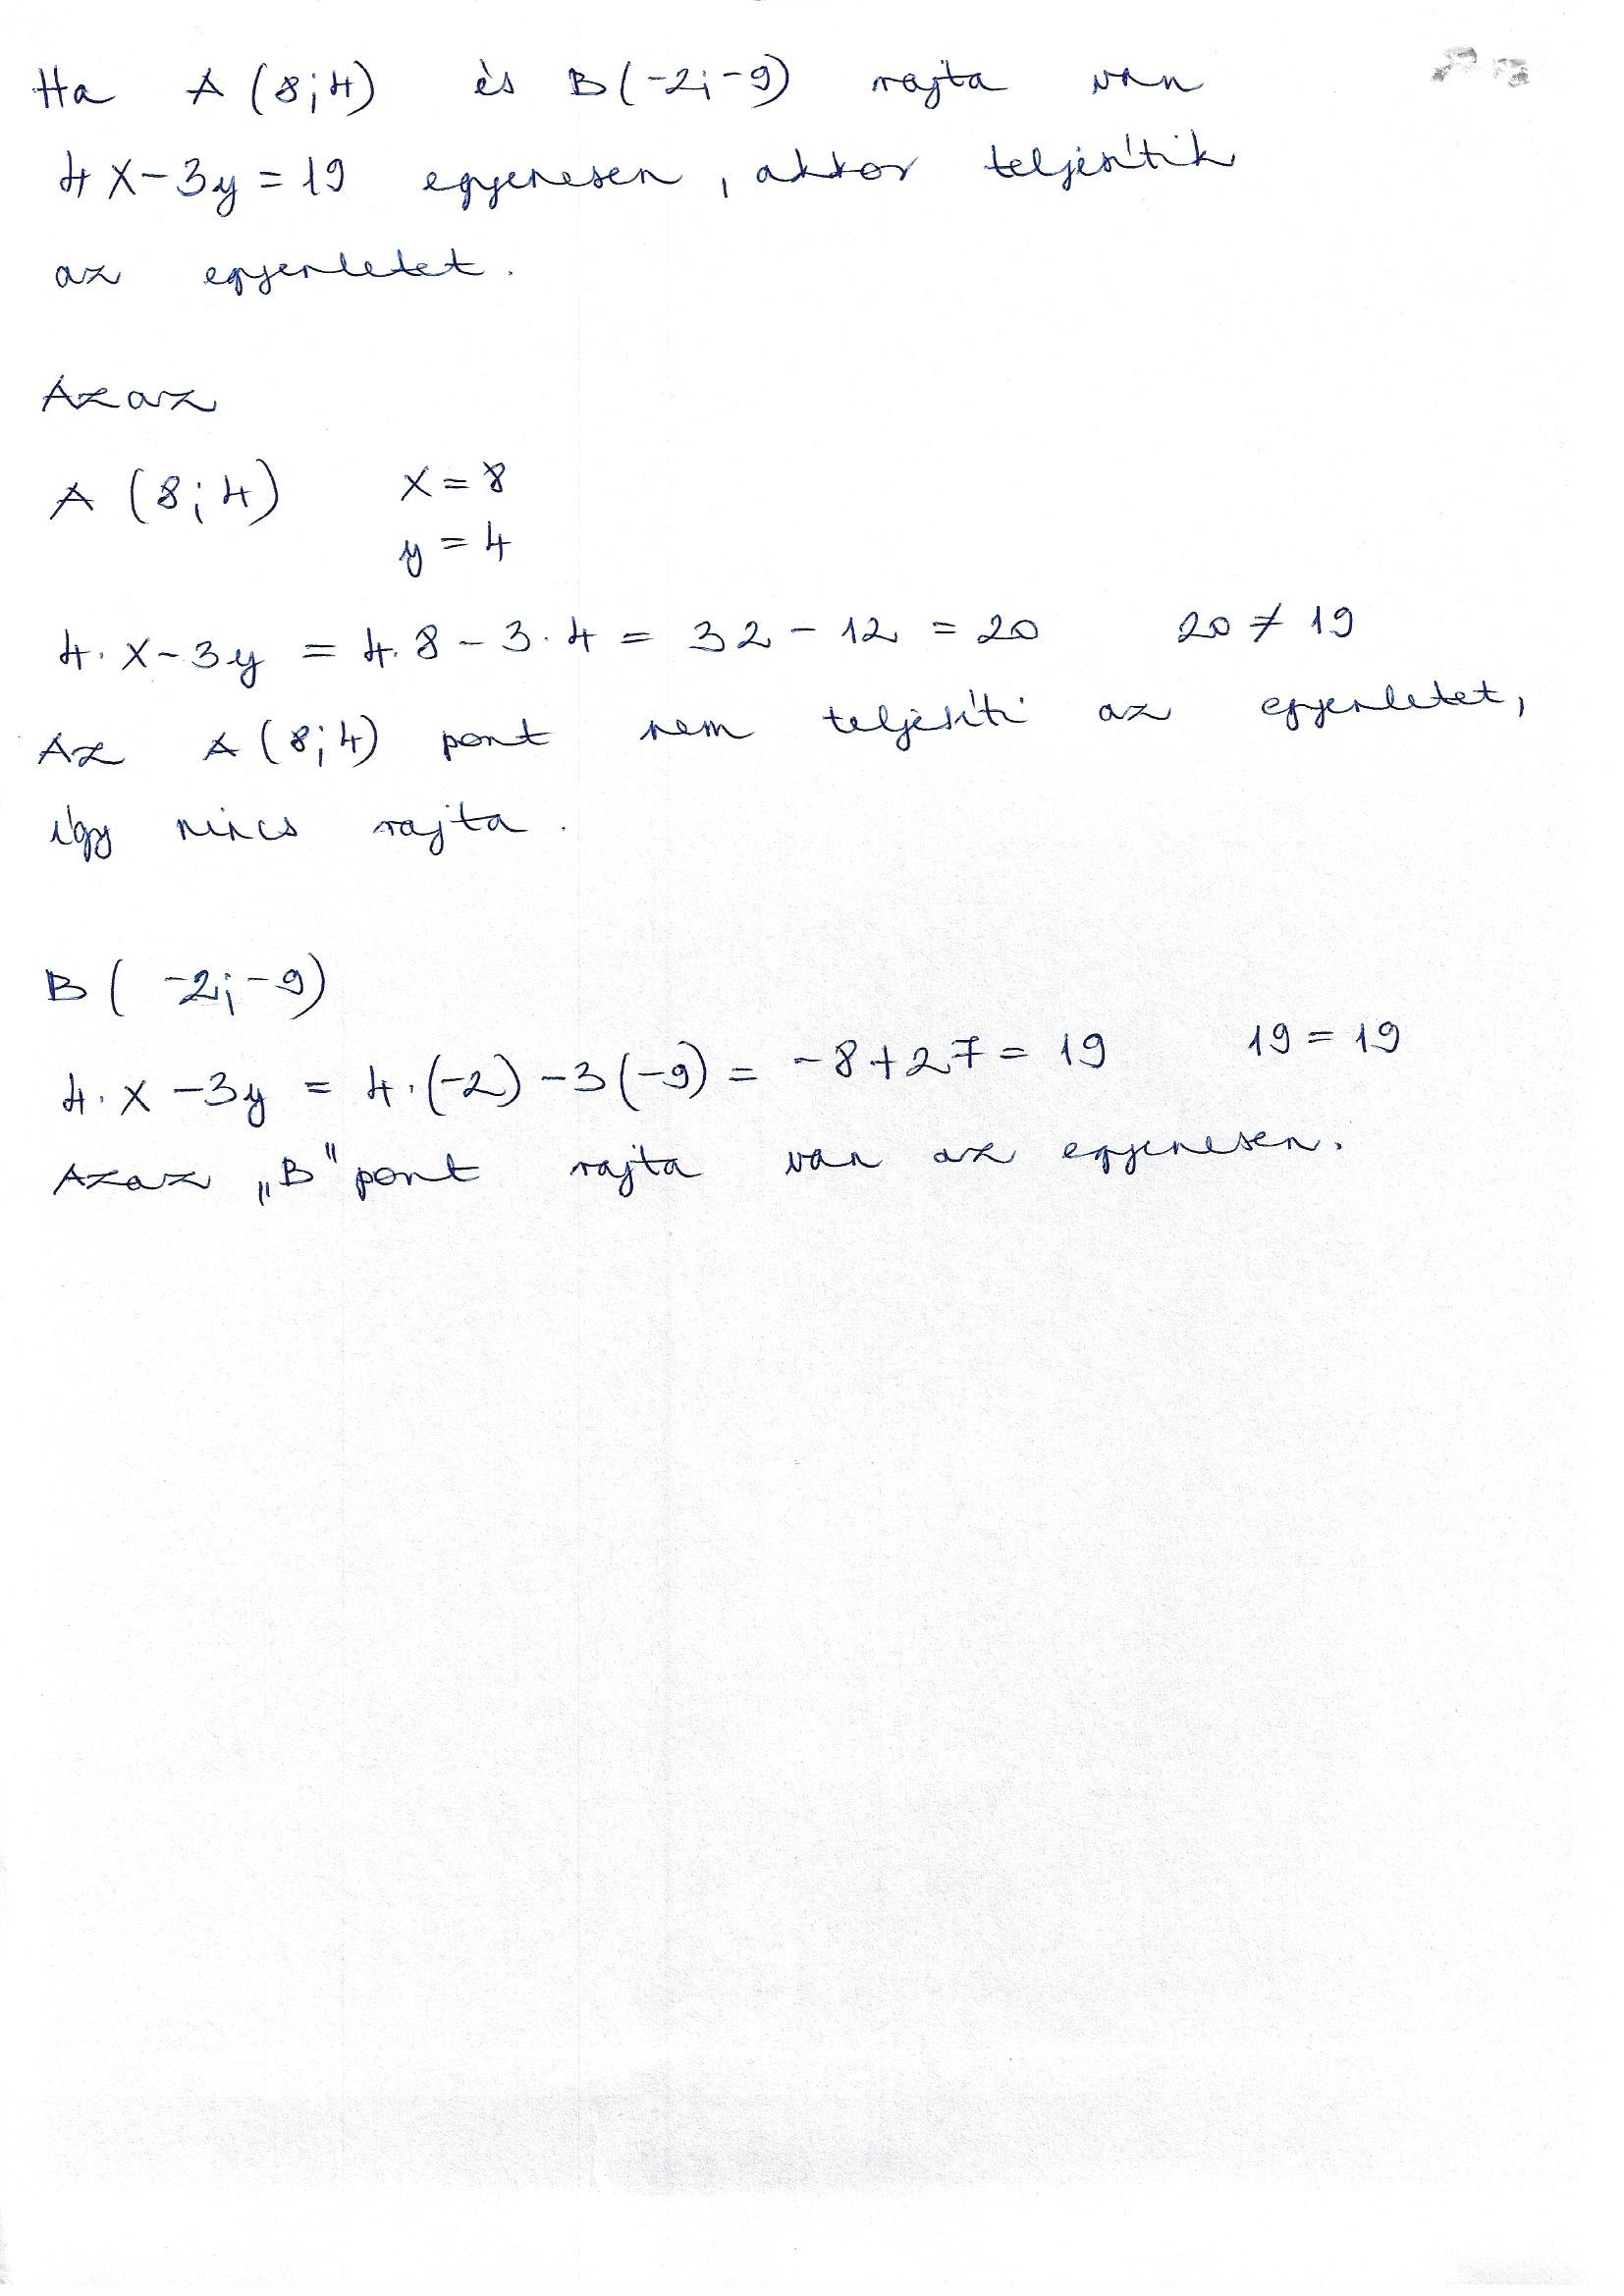 Ha A (8;4) és B(-2;-9) rajta van
4x-3y=19 egyenesen, akkor teljesítik
az egyenletet.
Azaz
A (8;4) x=8
y=4
4·x-3y = 4·8-3·4 = 32-12 = 20 20≠19
Az A(8;4) pont nem teljesíti az egyenletet,
így nincs rajta.
B( -2;-9)
4·x-3y = 4·(-2)-3(-9) = -8+27 = 19 19=19
Azaz „B" pont rajta van az egyenesen.